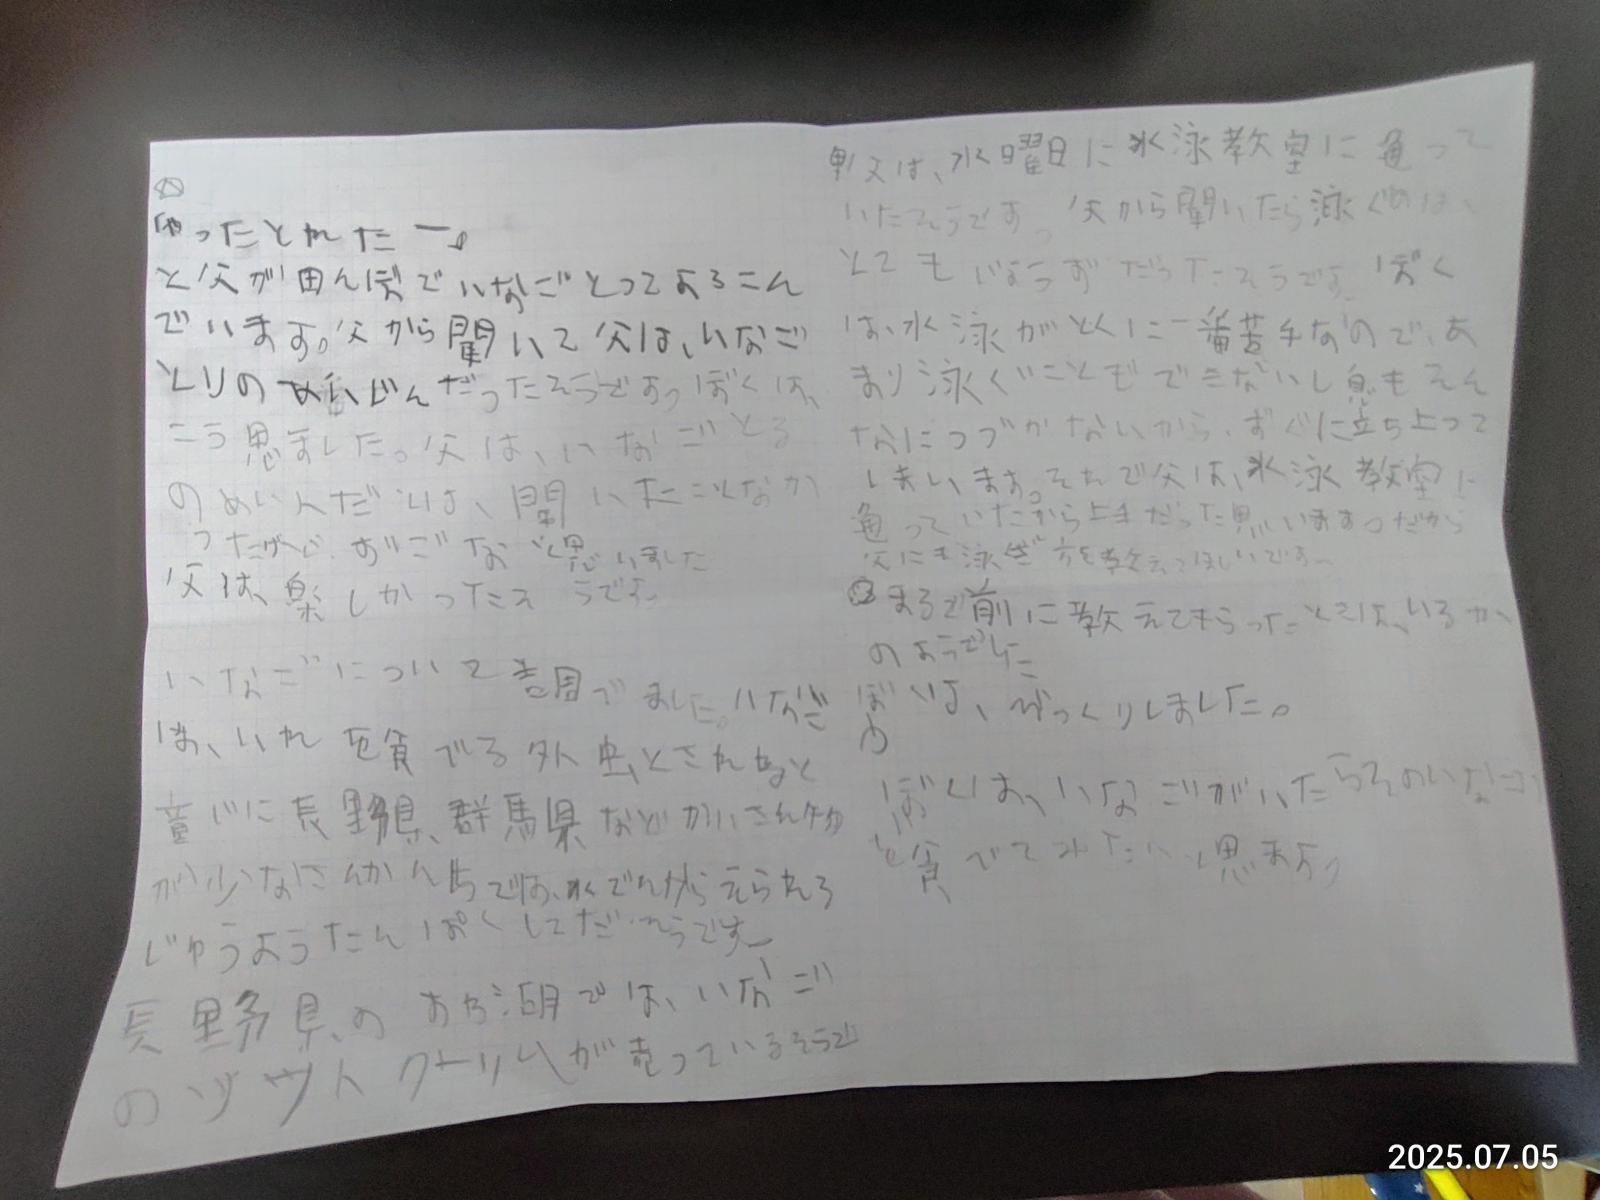 「やったとれたー。
と父が田んぼでいなごとってよろこん
でいます。父から聞いて父は、いなご
とりのめいじんだったそうです。ぼくは、
こう思ました。父は、いなごとる
のめい人だとは、聞いたことなか
ったけど、すごいな と思いました
父は、楽しかったそうです。
いなごについて調でました。いなご
は、いれ を食でる外虫とされ
長野県、群馬県などかいさん物
が少なさんかん ちでは、 えられる
じゅうようたんぱくし そうです。
長野県の 湖では、いなご
の クリームが売っているそうで
父は、水曜日に水泳教室に通って
いたそうです。父から聞いたら泳ぐのは、
とても じょうずだったそうです。ぼく
は、水泳がとくに一番苦手なので、あ
まり泳ぐこともできないし息もそん
なにつづかないから、すぐに立ち上って
しまいます。そんで父は、水泳教室に
通っていたから上手だった思いますっだから
父にも泳ぎ方を教えてほしいです。
まるで前に教えてもらったときは、いるか
のようでした
ぼくは、びっくりしました。
ぼくは、いなごがいたらそのいなご
を食べてみたいと思ます。
2025.07.05